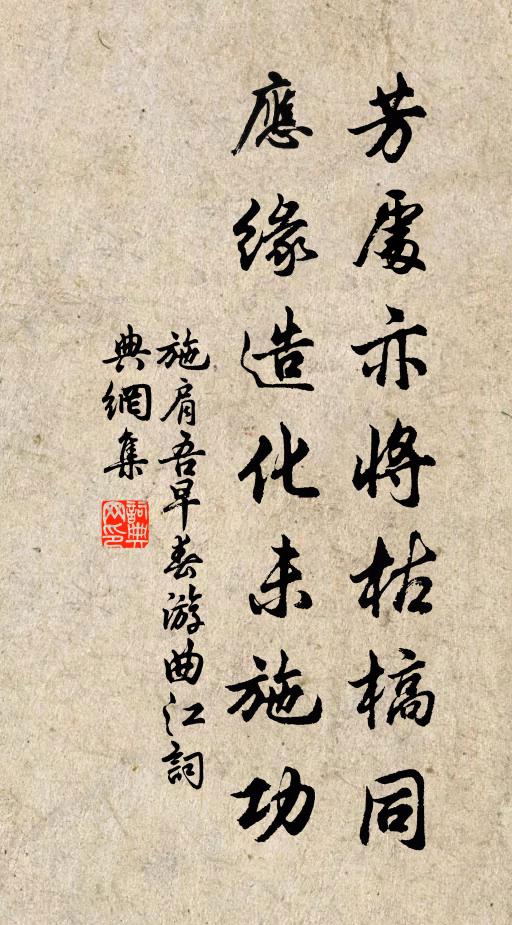 芳處亦將枯槁同
應緣造化未施功
施肩吾早春游曲江詞
典網集
詞典網印